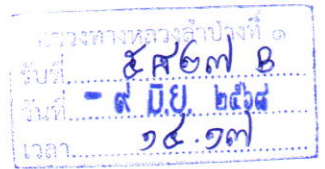 แขวงทางหลวงลำปางที่ ๑
รับที่ ๕๘๒๗ B
วันที่ - ๙ มิ.ย. ๒๕๖๘
เวลา ๑๔.๑๗